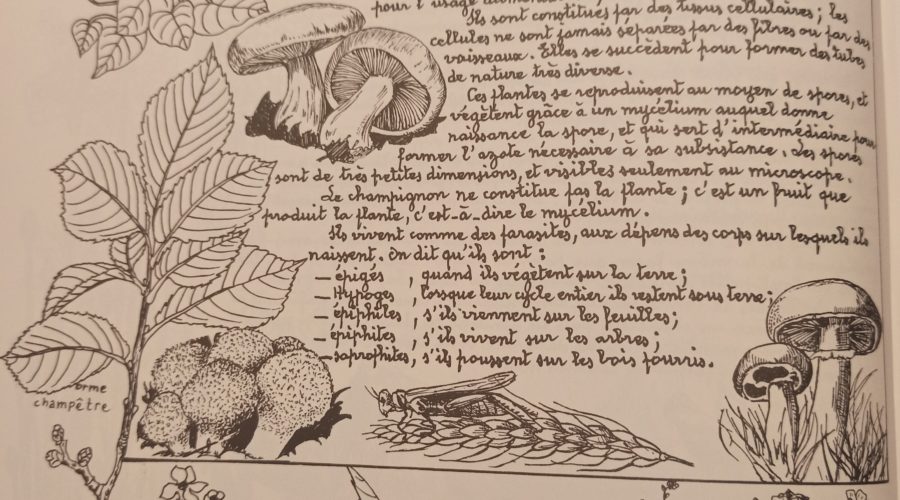 pour l'usage
Ils sont constitués par des tissus cellulaires ; les
cellules ne sont jamais séparées par des fibres ou par des
vaisseaux. Elles se succèdent pour former des tubes
de nature très diverse.
Ces plantes se reproduisent au moyen de spores, et
végètent grâce à un mycélium auquel donne
naissance la spore, et qui sert d'intermédiaire pour
former l'azote nécessaire à sa subsistance. Les spores
sont de très petites dimensions, et visibles seulement au microscope.
Le champignon ne constitue pas la plante ; c'est un fruit que
produit la plante, c'est-à-dire le mycélium.
Ils vivent comme des parasites, aux dépens des corps sur lesquels ils
naissent. On dit qu'ils sont :
_ épigés , quand ils végètent sur la terre ;
_ Hypogés , lorsque leur cycle entier ils restent sous terre ;
_ épiphiles , s'ils viennent sur les feuilles ;
_ épiphites , s'ils vivent sur les arbres ;
_ saprophites, s'ils poussent sur les bois pourris.
orme
champêtre